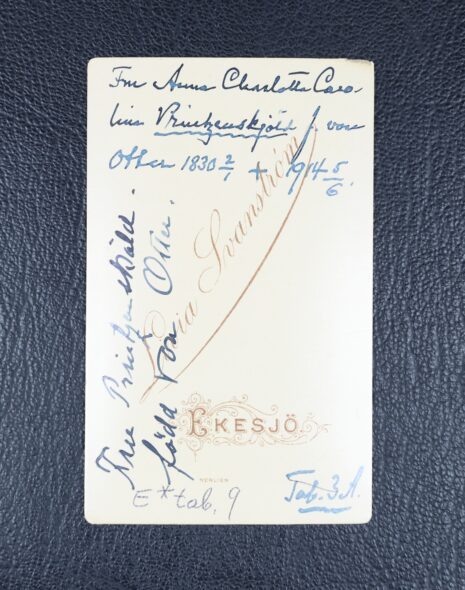 Fru Anna Charlotta Caro
lina Printzenskjöld f. von
Otter 1830 2/1 + 1914 5/6.
Fru Printzenskiöld.
född von Otter.
Maria Svanström
EKESJÖ.
NERLIEN
E* tab. 9
Tab. 3A.